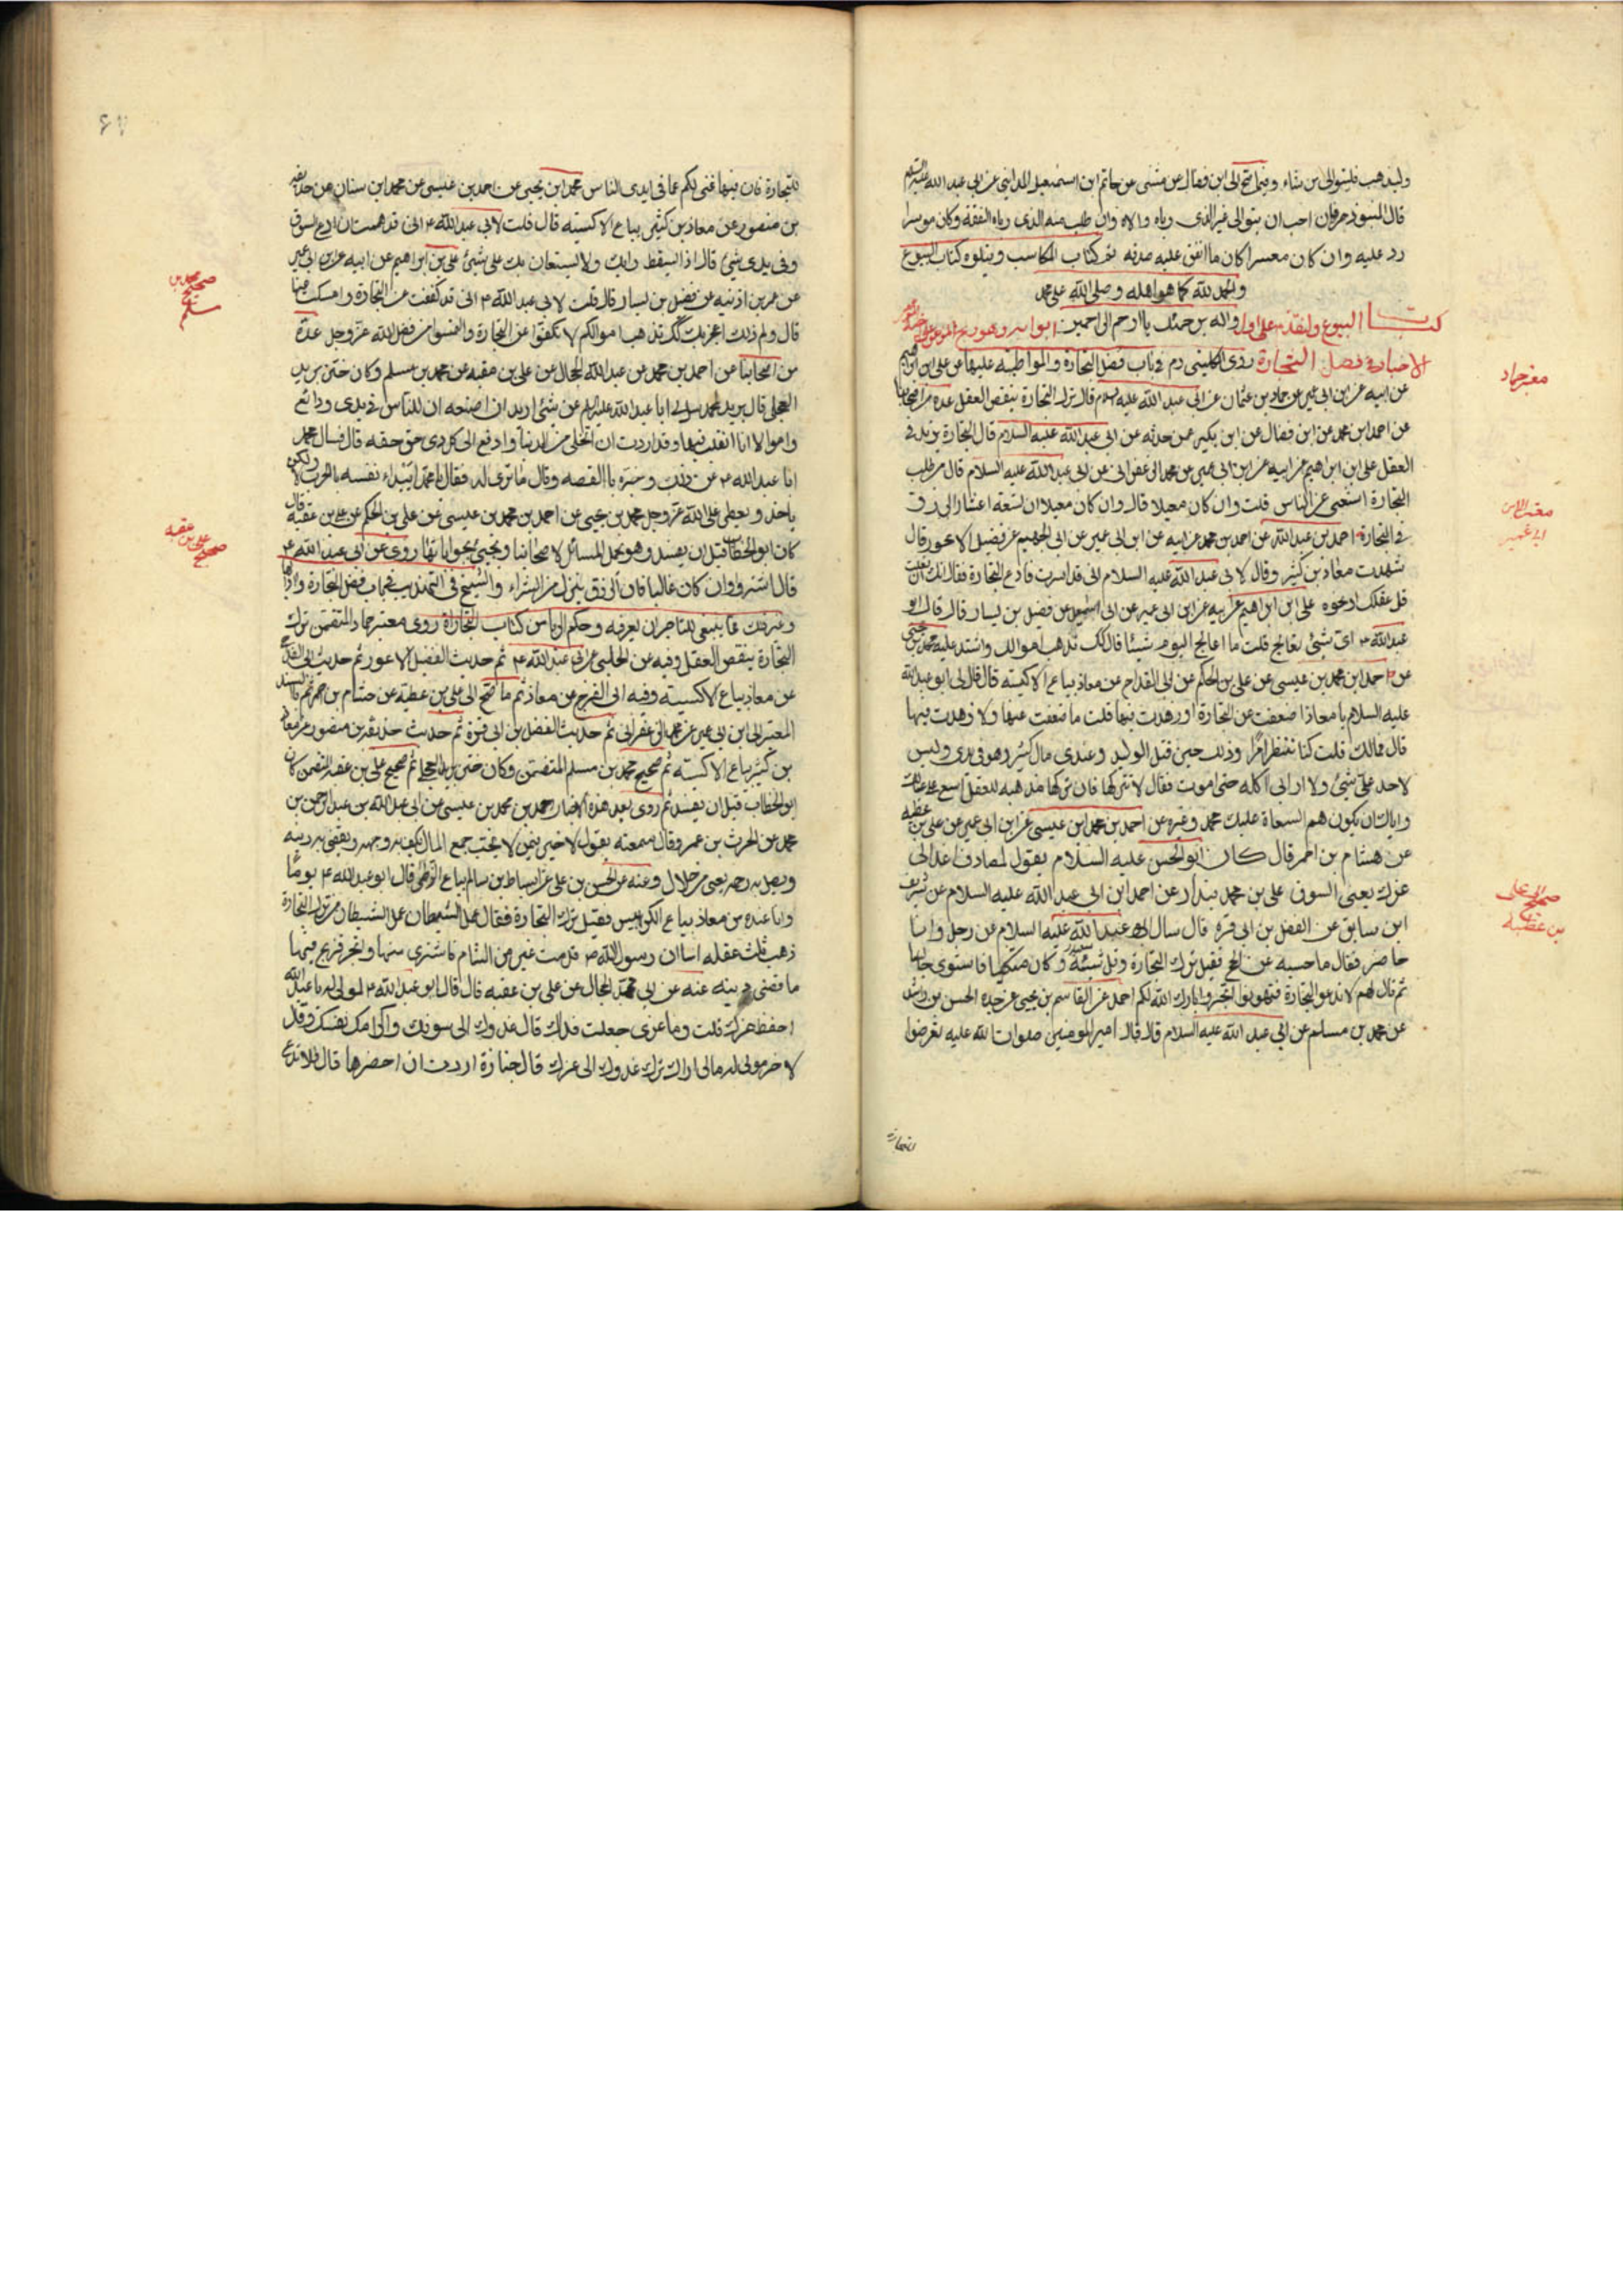 وليذهب فليتوالى من شاء وفيما صح الى ابن فضال عن مثنى عن حاتم ابن اسمعيل المدايني عن ابي عبد الله عليه السلام
قال المنبوذ حر فان احب ان يتوالى غير الذي رباه والاه وان طلب منه الذي رباه النفقة وكان موسرا
رد عليه وان كان معسرا كان ما انفق عليه صدقه تم كتاب المكاسب ويتلوه كتاب البيوع
والحمد لله كما هو اهله وصلى الله على محمد
كتاب البيوع ولنقدم على واله برحمتك يا ارحم الراحمين
الاخبار في فضل التجارة روى الكليني في باب فضل التجارة والمواظبة عليها عن علي ابن ابراهيم
عن ابيه عن ابن ابي عمير عن حماد بن عثمان عن ابي عبد الله عليه السلام قال ترك التجارة ينقص العقل عدة من اصحابنا
عن احمد ابن محمد عن ابن فضال عن ابن بكير عمن حدثه عن ابي عبد الله عليه السلام قال التجارة يزيد في
العقل علي ابن ابراهيم عن ابيه عن ابن ابي عمير عن محمد الزعفراني عن ابي عبد الله عليه السلام قال من طلب
التجارة استغنى عن الناس قلت وان كان معيلا قال وان كان معيلا ان تسعة اعشار الرزق
في التجارة احمد بن عبد الله عن احمد بن محمد عن ابيه عن ابن ابي عمير عن ابي الجهم عن فضيل الاعور قال
شهدت معاذ بن كثير وقال لابي عبد الله عليه السلام اني قد ايسرت فادع التجارة فقال انك ان فعلت
قل عقلك او نحوه علي ابن ابراهيم عن ابيه عن ابن ابي عمير عن ابي اسمعيل عن فضل بن يسار قال قال ابو
عبد الله ع اي شيئ تعالج قلت ما اعالج اليوم شيئا قال كذلك تذهب اموالكم واشتد عليه محمد بن يحيى
عن احمد ابن محمد بن عيسى عن علي بن الحكم عن ابي الفرج عن معاذ بياع الاكسيه قال قال لي ابو عبد الله
عليه السلام يا معاذ اضعفت عن التجارة او زهدت فيها قلت ما ضعفت عنها ولا زهدت فيها
قال فمالك قلت كنا ننتظر امرا وذلك حين قتل الوليد وعندي مال كثير وهو في يدي وليس
لاحد علي شيئ ولا اراني اكله حتى اموت فقال لا تتركها فان تركها مذهبة للعقل اسع على عيالك
واياك ان يكون هم السعاة عليك محمد وغيره عن احمد بن محمد ابن عيسى عن ابن ابي عمير عن علي بن عطيه
عن هشام بن احمر قال كان ابو الحسن عليه السلام يقول لمصادف اغد الى
عزك يعني السوق علي بن محمد بندار عن احمد ابن ابي عبد الله عليه السلام عن شريف
ابن سابق عن الفضل بن ابي قره قال سال ابو عبد الله عليه السلام عن رجل وانا
حاضر فقال ما حبسه عن الحج فقيل ترك التجارة وقل شيئه وكان متكيا فاستوى جالسا
ثم قال لهم لا تدعو التجارة فتهونوا اتجروا بارك الله لكم احمد عن القاسم بن يحيى عن جده الحسن بن راشد
عن محمد بن مسلم عن ابي عبد الله عليه السلام قال قال امير المومنين صلوات الله عليه تعرضوا
معتبر حماد
صحيح الى علي
بن عطيه
للتجارة فان فيها غنى لكم عما في ايدي الناس محمد ابن يحيى عن احمد بن عيسى عن محمد ابن سنان عن حذيفه
بن منصور عن معاذ بن كثير بياع الاكسيه قال قلت لابي عبد الله ع اني قد هممت ان ادع السوق
وفي يدي شيئ قال اذا يسقط رايك ولا يستعان بك على شيئ علي بن ابراهيم عن ابيه عن ابن ابي عمير
عن عمر بن اذينه عن فضيل بن يسار قال قلت لابي عبد الله ع اني قد كففت عن التجارة وامسكت عنها
قال ولم ذلك اعجز بك كذلك تذهب اموالكم لا تكفوا عن التجارة والتمسوا من فضل الله عز وجل عدة
من اصحابنا عن احمد بن محمد عن عبد الله الحجال عن علي بن عقبه عن محمد بن مسلم وكان ختن بريد
العجلي قال بريد لمحمد سل لي ابا عبد الله عليه السلم عن شئ اريد ان اصنعه ان للناس في يدي ودائع
واموالا انا اتقلب فيها وقد اردت ان اتخلى من الدنيا وادفع الى كل ذي حق حقه قال فسال محمد
ابا عبد الله ع عن ذلك وخبره با القصه وقال ما ترى له فقال يا محمد ايبداء نفسه بالحرب لا ولكن
ياخذ ويعطي على الله عز وجل محمد بن يحيى عن احمد بن محمد بن عيسى عن علي بن الحكم عن علي بن عقبه قال
كان ابو الخطاب قبل ان يفسد وهو يحمل المسائل لاصحابنا ويجيئ بجواباتها روى عن ابي عبد الله ع
قال اشتروا وان كان غاليا فان الرزق ينزل مع الشراء والشيخ في التهذيب في باب فضل التجارة وادابها
وغير ذلك مما ينبغي للتاجر ان يعرفه وحكم الربا من كتاب التجارة روى معتبر حماد المتضمن ترك
التجارة ينقص العقل وفيه عن الحلبي عن ابي عبد الله ع ثم حديث الفضيل الاعور ثم حديث
عن معاذ بياع الاكسيه وفيه ابي الفرج عن معاذ ثم ما صح الى علي بن عطيه عن هشام بن احمر ثم بالسند
المعتبر الى ابن ابي عمير عن محمد الزعفراني ثم حديث الفضل بن ابي قرة ثم حديث حذيفه بن منصور عن معاذ
بن كثير بياع الاكسيه ثم صحيح محمد بن مسلم المتضمن وكان ختن بريد العجلي ثم صحيح علي بن عقبه المتضمن كان
ابو الخطاب قبل ان يفسد ثم روى بعد هذه الاخبار احمد بن محمد بن عيسى عن ابي عبد الله عن عبد الرحمن بن
محمد عن الحرث بن عمر وقال سمعته يقول لا خير فيمن لا يحب جمع المال يكف به وجهه ويقضي به دينه
ويصل به رحمه يعني من حلال وعنه عن الحسن بن علي عن اسباط بن سالم بياع الزطي قال ابو عبد الله ع يوما
وانا عنده عن معاذ بياع الكرابيس فقيل ترك التجارة فقال عمل الشيطان عمل الشيطان من ترك التجارة
ذهب ثلث عقله اما ان رسول الله ص قدمت عير من الشام فاشترى منها واتجر فربح فيها
ما قضى دينه عنه عن ابي محمد الحجال عن علي بن عقبه قال قال ابو عبد الله ع لمولى له يا عبد الله
احفظ عزك قلت وما عزي جعلت فداك قال غدوك الى سوقك واكرامك نفسك وقال
لاخر مولى له مالي اراك تركت غدوك الى عزك قال جنازة اردت ان احضرها قال فلا تدع
صحيح محمد بن
مسلم
صحيح علي بن عقبه